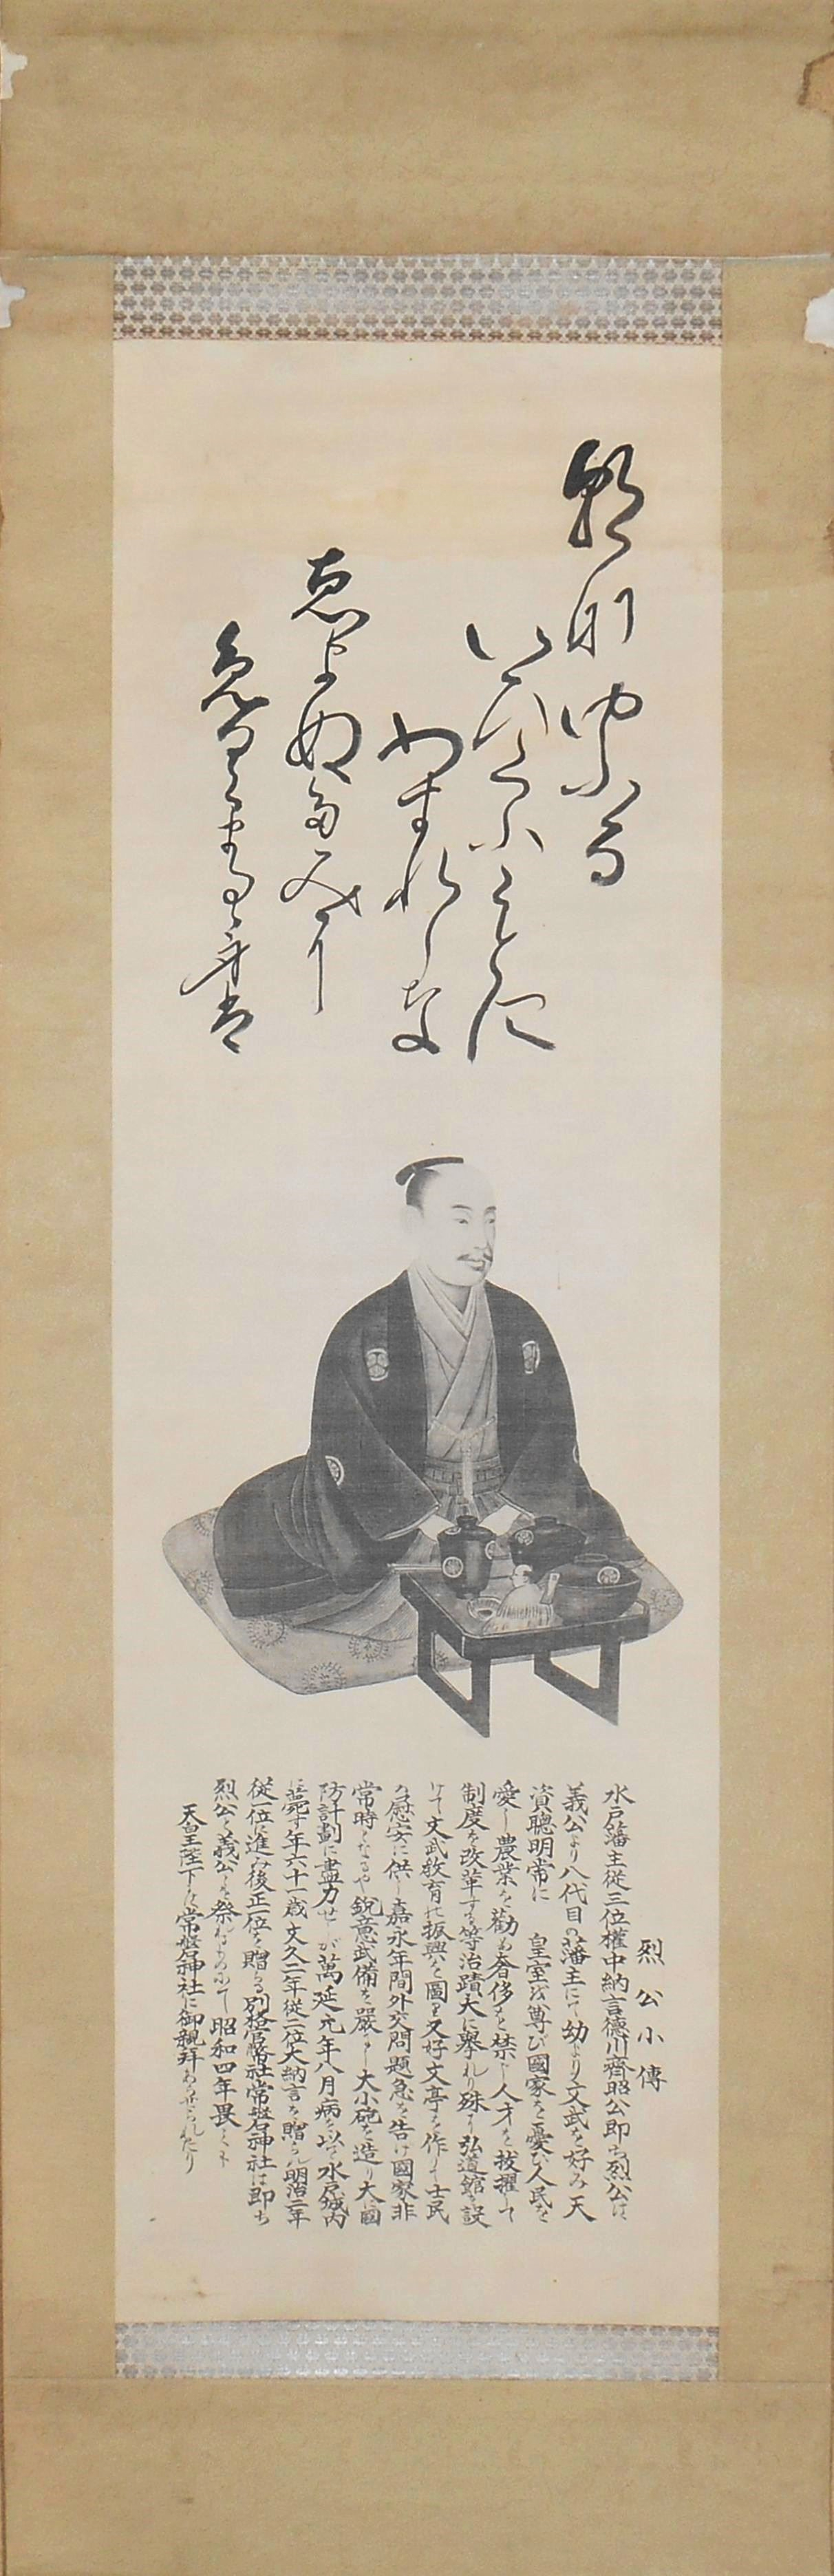 朝那ゆふな
いひくふことに
わすれしな
恵まぬ多みに
免くまるゝ身者
烈公小傳
水戸藩主從三位權中納言德川齊昭公即ち烈公は
義公より八代目の藩主にて幼より文武を好み天
資聰明常に　皇室を尊び國家を憂ひ人民を
愛し農業を勸め奢侈を禁じ人才を拔擢して
制度を改革する等治蹟大に擧れり殊に弘道館を設
けて文武敎育の振興を圖り又好文亭を作りて士民
の慰安に供し嘉永年間外交問題急を告け國家非
常時となるや銳意武備を嚴にし大小砲を造り大に國
防計劃に盡力せしが萬延元年八月病を以て水戸城内
に薨ず年六十一歳文久二年從二位大納言を贈られ明治二年
從一位に進み後正一位を贈らる別格官幣社常磐神社は即ち
烈公と義公とを祭れるものにて昭和四年畏くも
天皇陛下には常磐神社に御親拜あらせられたり